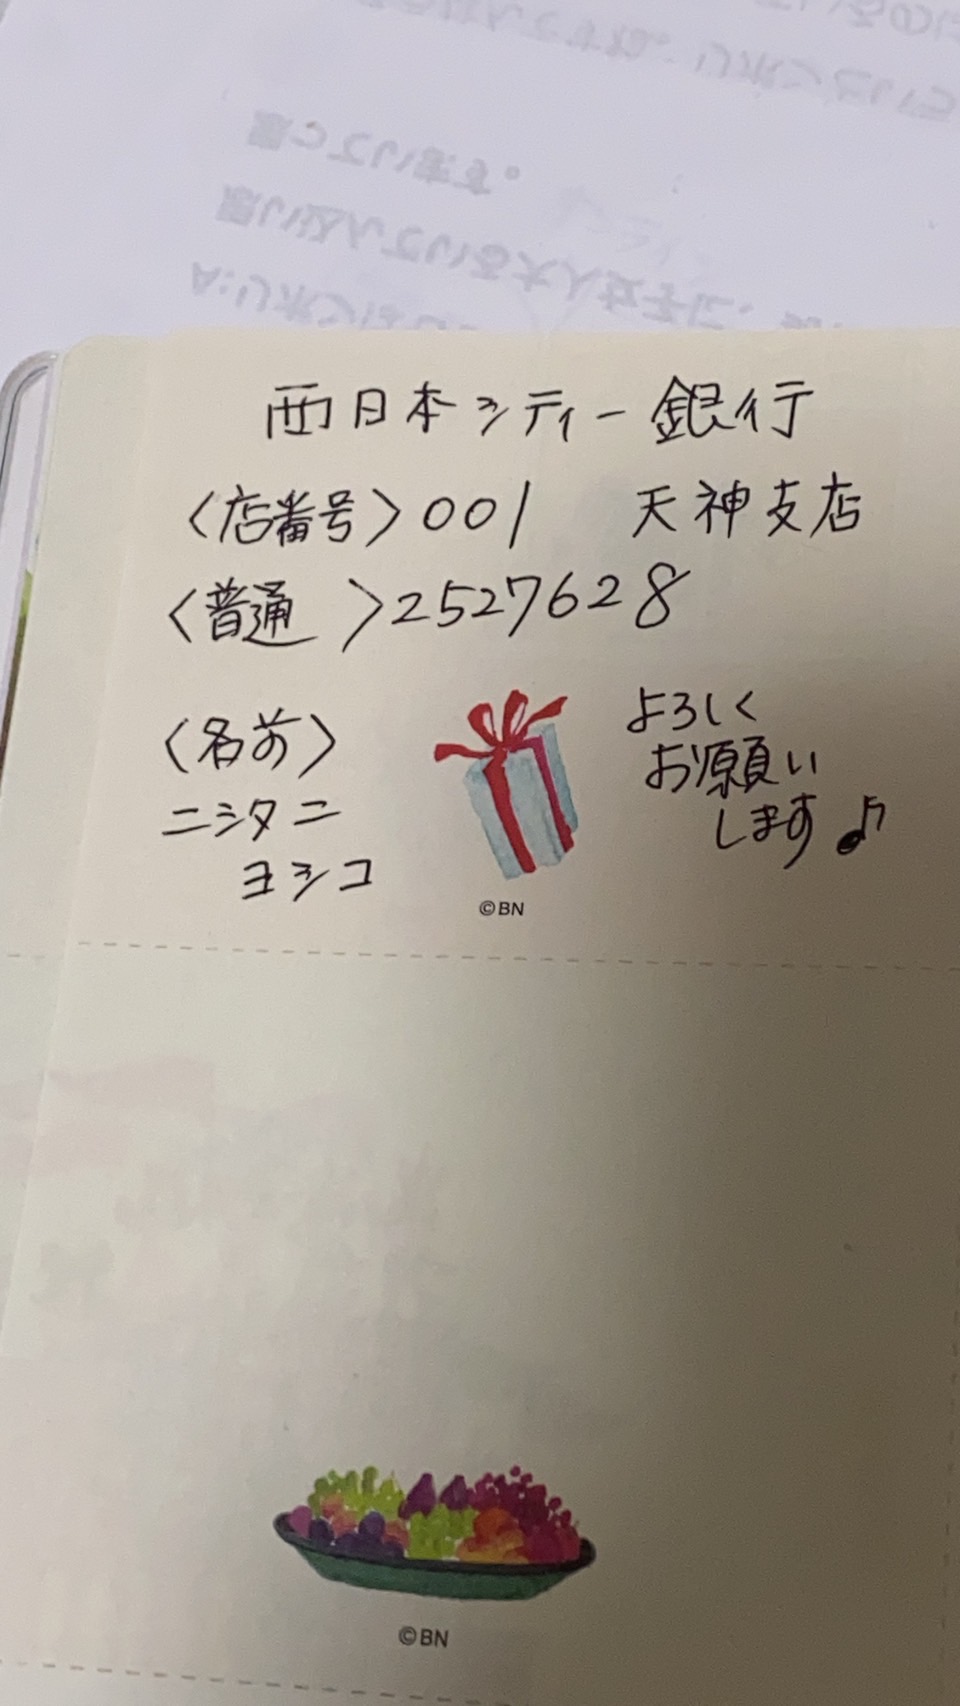 西日本シティー銀行
〈店番号〉001 天神支店
〈普通 〉2527628
〈名前〉
ニシタニ
ヨシコ
よろしく
お願い
します♪
©BN
©BN